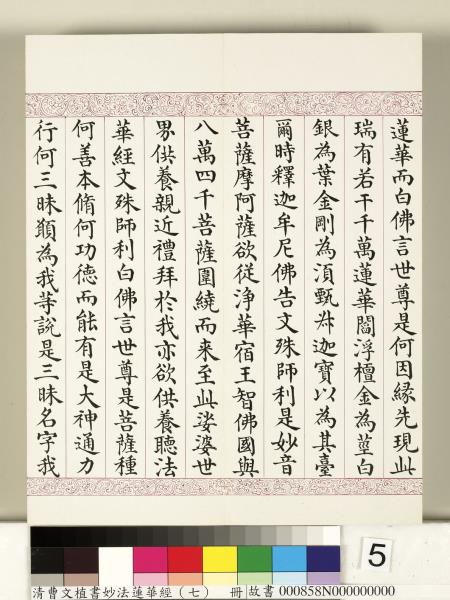 蓮華而白佛言世尊是何因緣先現此
瑞有若干千萬蓮華閻浮檀金為莖白
銀為葉金剛為湏甄叔迦寶以為其臺
爾時釋迦牟尼佛告文殊師利是妙音
菩薩摩訶薩欲從淨華宿王智佛國與
八萬四千菩薩圍繞而来至此娑婆世
界供養親近禮拜於我亦欲供養聽法
華經文殊師利白佛言世尊是菩薩種
何善本脩何功德而能有是大神通力
行何三昧願為我等說是三昧名字我
5
清曹文植書妙法蓮華經（七） 冊 故書 000858N000000000